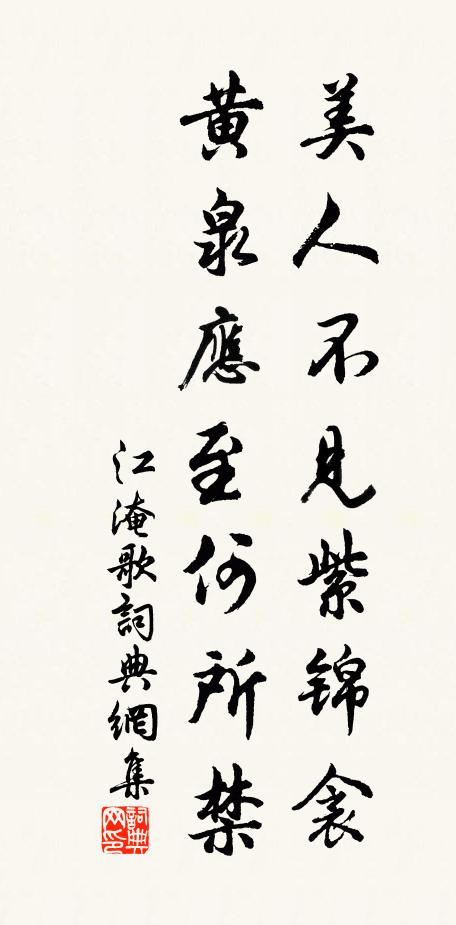 美人不見紫錦衾
黃泉應至何所禁
江淹歌詞典網集
詞典网印